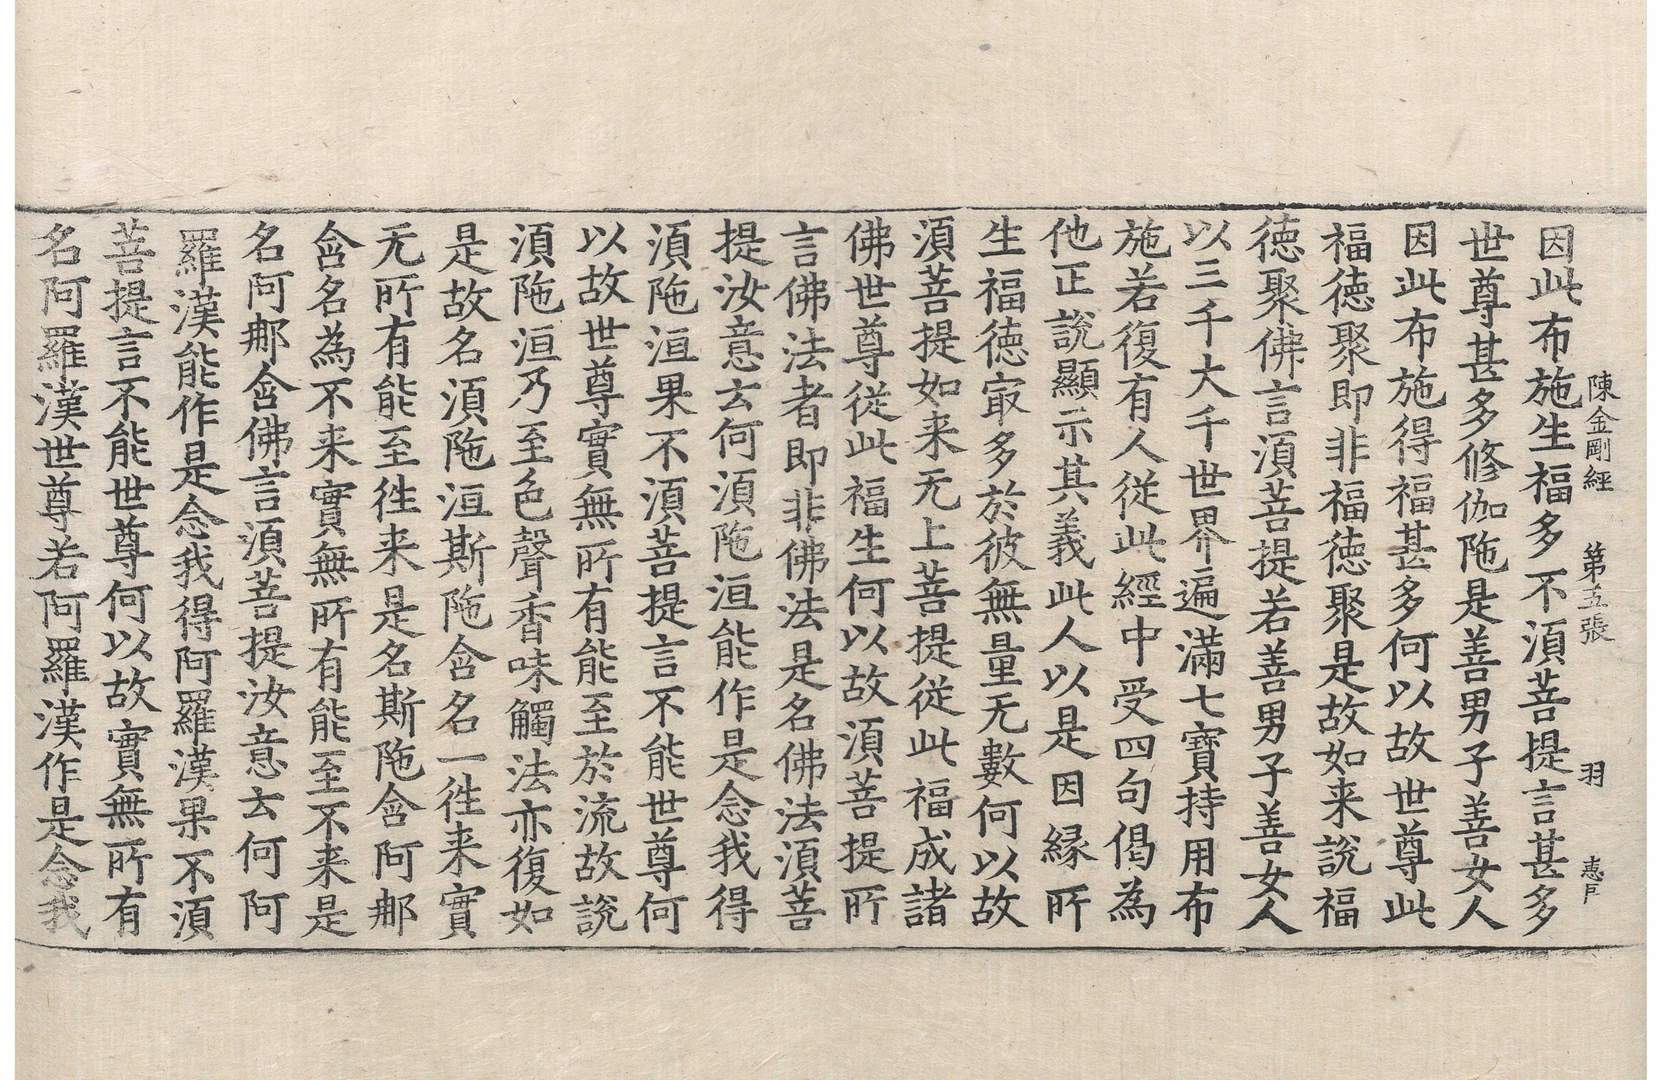 陳金剛經　第五張　羽　惠戶
因此布施生福多不須菩提言甚多
世尊甚多修伽陁是善男子善女人
因此布施得福甚多何以故世尊此
福徳聚即非福徳聚是故如来說福
徳聚佛言須菩提若善男子善女人
以三千大千世界遍滿七寶持用布
施若復有人従此經中受四句偈為
他正說顯示其義此人以是因縁所
生福徳㝡多於彼無量无數何以故
須菩提如来无上菩提従此福成諸
佛世尊従此福生何以故須菩提所
言佛法者即非佛法是名佛法須菩
提汝意云何須陁洹能作是念我得
須陁洹果不須菩提言不能世尊何
以故世尊實無所有能至於流故說
須陁洹乃至色聲香味觸法亦復如
是故名須陁洹斯陁含名一徃来實
无所有能至徃来是名斯陁含阿那
含名為不来實無所有能至不来是
名阿那含佛言須菩提汝意云何阿
羅漢能作是念我得阿羅漢果不須
菩提言不能世尊何以故實無所有
名阿羅漢世尊若阿羅漢作是念我